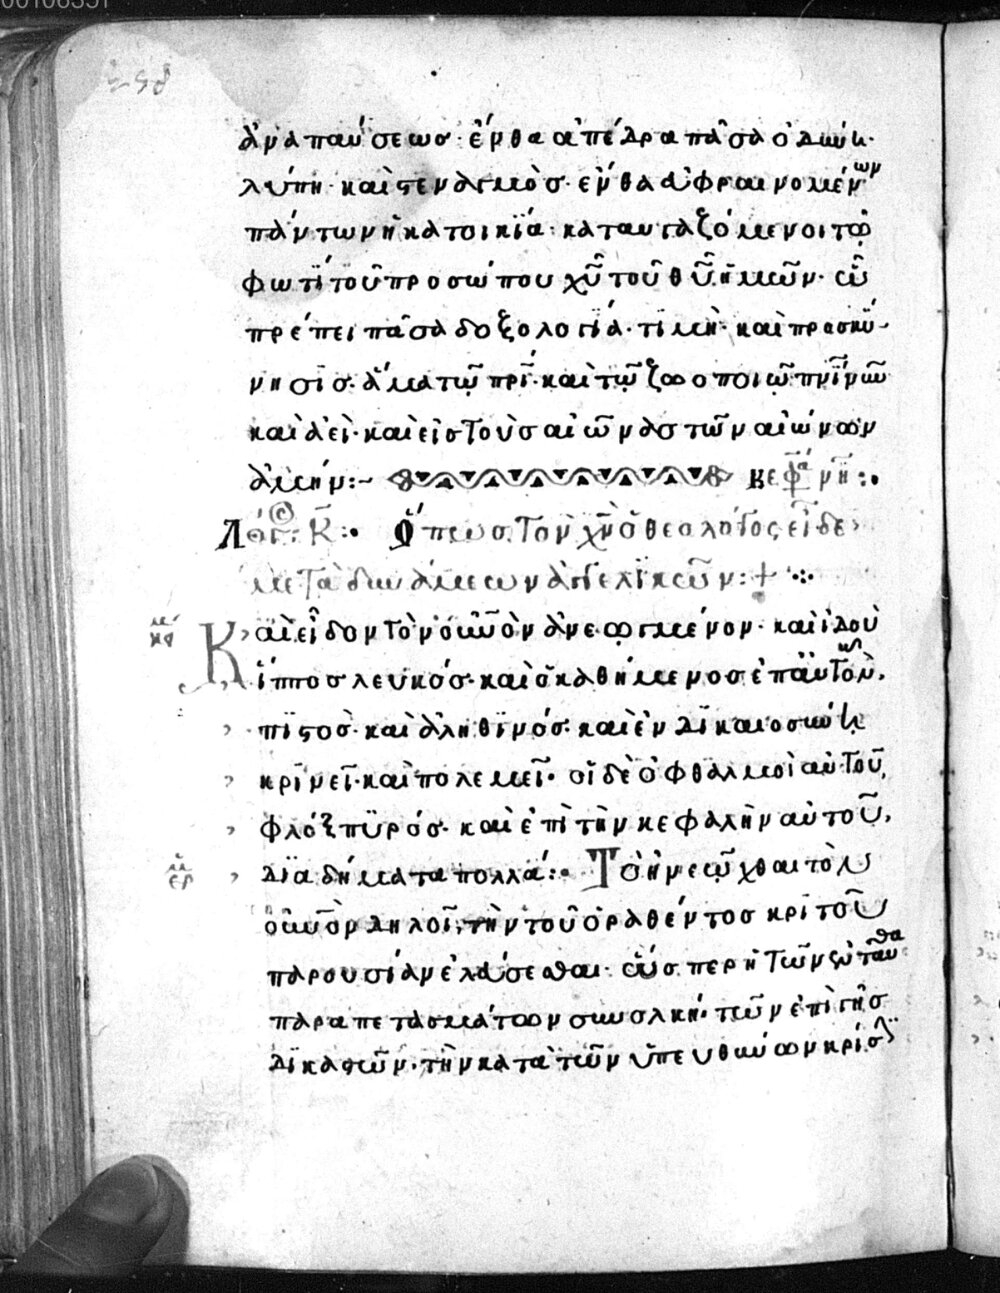 ἀναπαύσεως· ἔνθα ἀπέδρα πᾶσα ὀδύνη·
λύπη· καὶ στεναγμὸσ· ἔνθα ἐυφραινομένων
πάντων ἡ κατοικΐα· καταυγαζόμενοι τῶ
φωτὶ τοῦ προσώπου χῦ τοῦ θῦ ἡμῶν· ὧ
πρέπει πᾶσα δοξολογΐα· τιμὴ· καὶ προσκύ-
νησϊσ· ἅμα τῶ πρὶ· καὶ τῶ ζωοποιῶ πνΐ νῦν
καὶ ἀεὶ· καὶ εἰσ τοὺσ αἰῶνασ τῶν αἰώνων
ἀμήν:~ κεφα νη:·
Λόγ: κ:· Ὅπωσ τὸν χν ὁ θεολόγος εἶδε
μετὰ δυνάμεων ἀγγελϊκῶν:+
Καὶ εἶδον τὸν οὐνὸν ἀνεωγμένον· καὶ ἰδοὺ
ἵπποσ λευκόσ· καὶ ὁ καθήμενοσ ἐπ' αὐτὸν,
πϊστὸσ· καὶ ἀληθϊνόσ· καὶ ἐν δικαιοσύνη
κρίνει· καὶ πολεμεῖ· οἱ δὲ ὀφθαλμοὶ αὐτοῦ,
φλὸξ πϋρόσ· καὶ ἐπὶ τὴν κεφαλὴν αὐτοῦ,
διαδήματα πολλά:· Τὸ ἠνεῶχθαι τὸν
οὐνὸν δηλοῖ, τὴν τοῦ ὁραθέντοσ κριτοῦ
παρουσίαν ἐλεύσεσθαι· ὥσπερ ἡ τῶν ἐνταῦθα
παραπετασμάτων συνολκή· τῶν ἐπὶ γῆσ
δικαστῶν· τὴν κατὰ τῶν ὑπευθύνων κρίσϊν